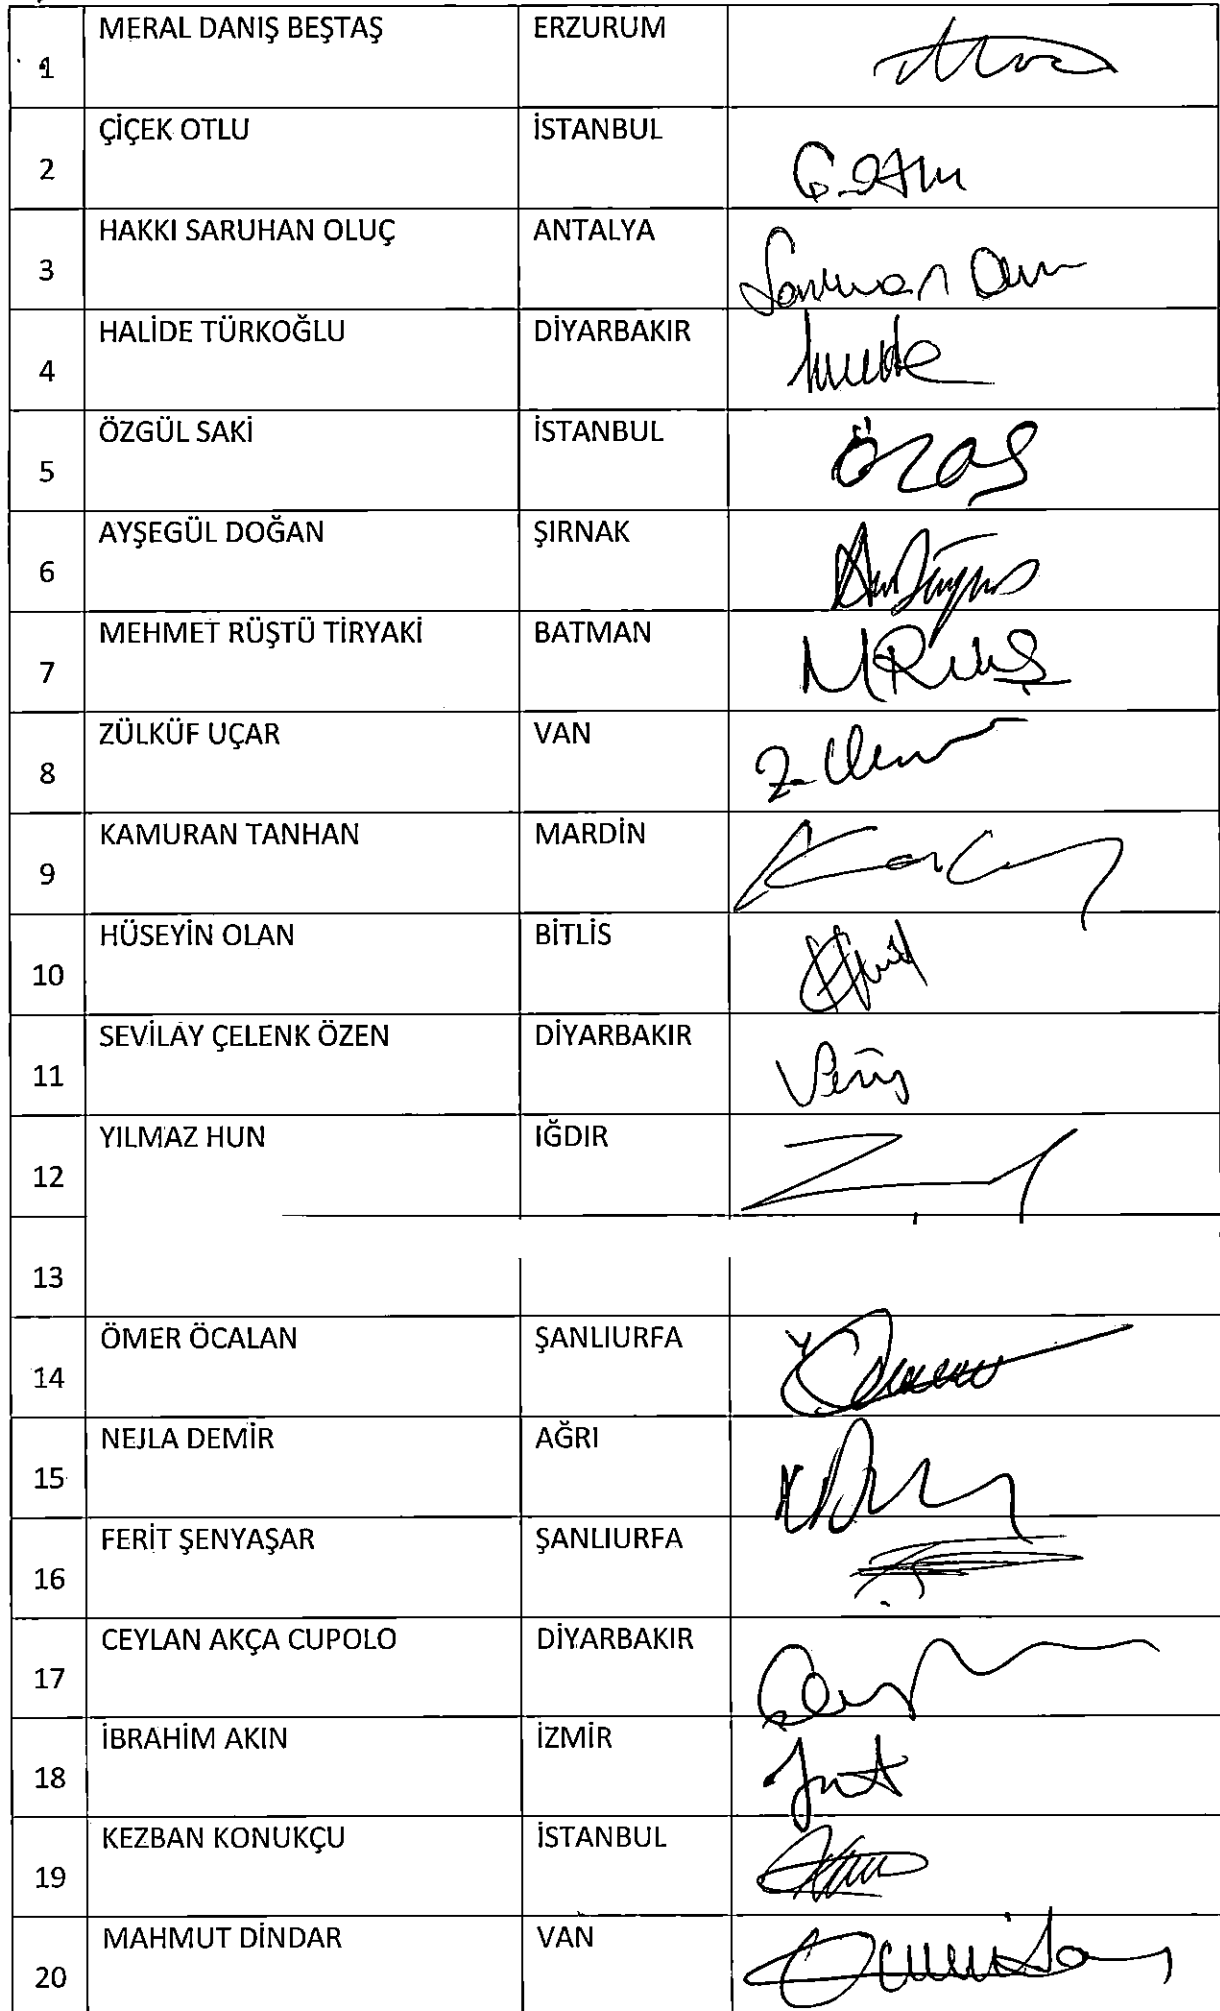 1 MERAL DANIŞ BEŞTAŞ ERZURUM
2 ÇİÇEK OTLU İSTANBUL
3 HAKKI SARUHAN OLUÇ ANTALYA
4 HALİDE TÜRKOĞLU DİYARBAKIR
5 ÖZGÜL SAKİ İSTANBUL
6 AYŞEGÜL DOĞAN ŞIRNAK
7 MEHMET RÜŞTÜ TİRYAKİ BATMAN
8 ZÜLKÜF UÇAR VAN
9 KAMURAN TANHAN MARDİN
10 HÜSEYİN OLAN BİTLİS
11 SEVİLAY ÇELENK ÖZEN DİYARBAKIR
12 YILMAZ HUN IĞDIR
13
14 ÖMER ÖCALAN ŞANLIURFA
15 NEJLA DEMİR AĞRI
16 FERİT ŞENYAŞAR ŞANLIURFA
17 CEYLAN AKÇA CUPOLO DİYARBAKIR
18 İBRAHİM AKIN İZMİR
19 KEZBAN KONUKÇU İSTANBUL
20 MAHMUT DİNDAR VAN